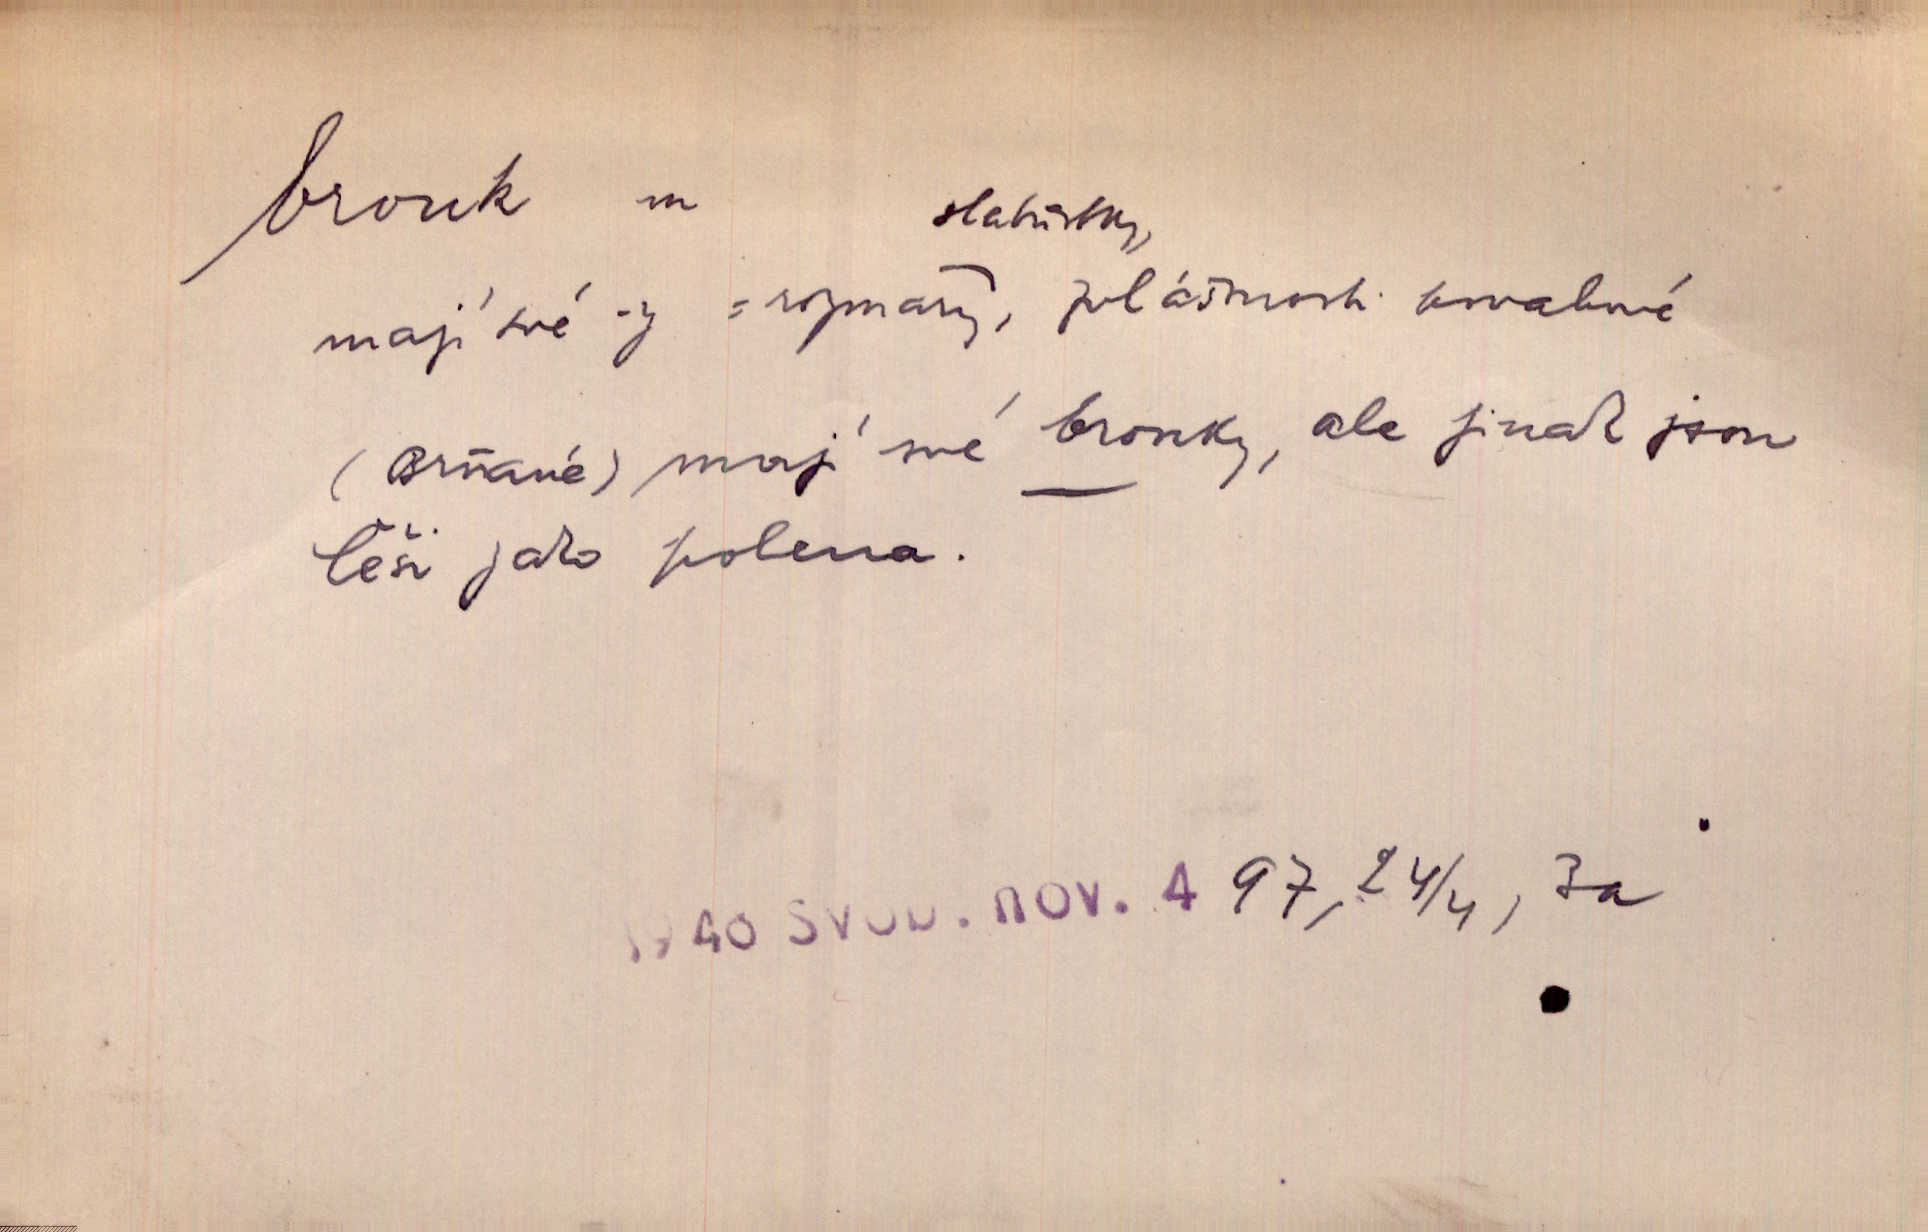 brouk m
slabůstky,
mají své -y = rozmary, zvláštnosti
(Brňané) mají své brouky, ale jinak jsou
Češi jako polena.
1940 Svob. nov. 4 97, 24/4, 3a